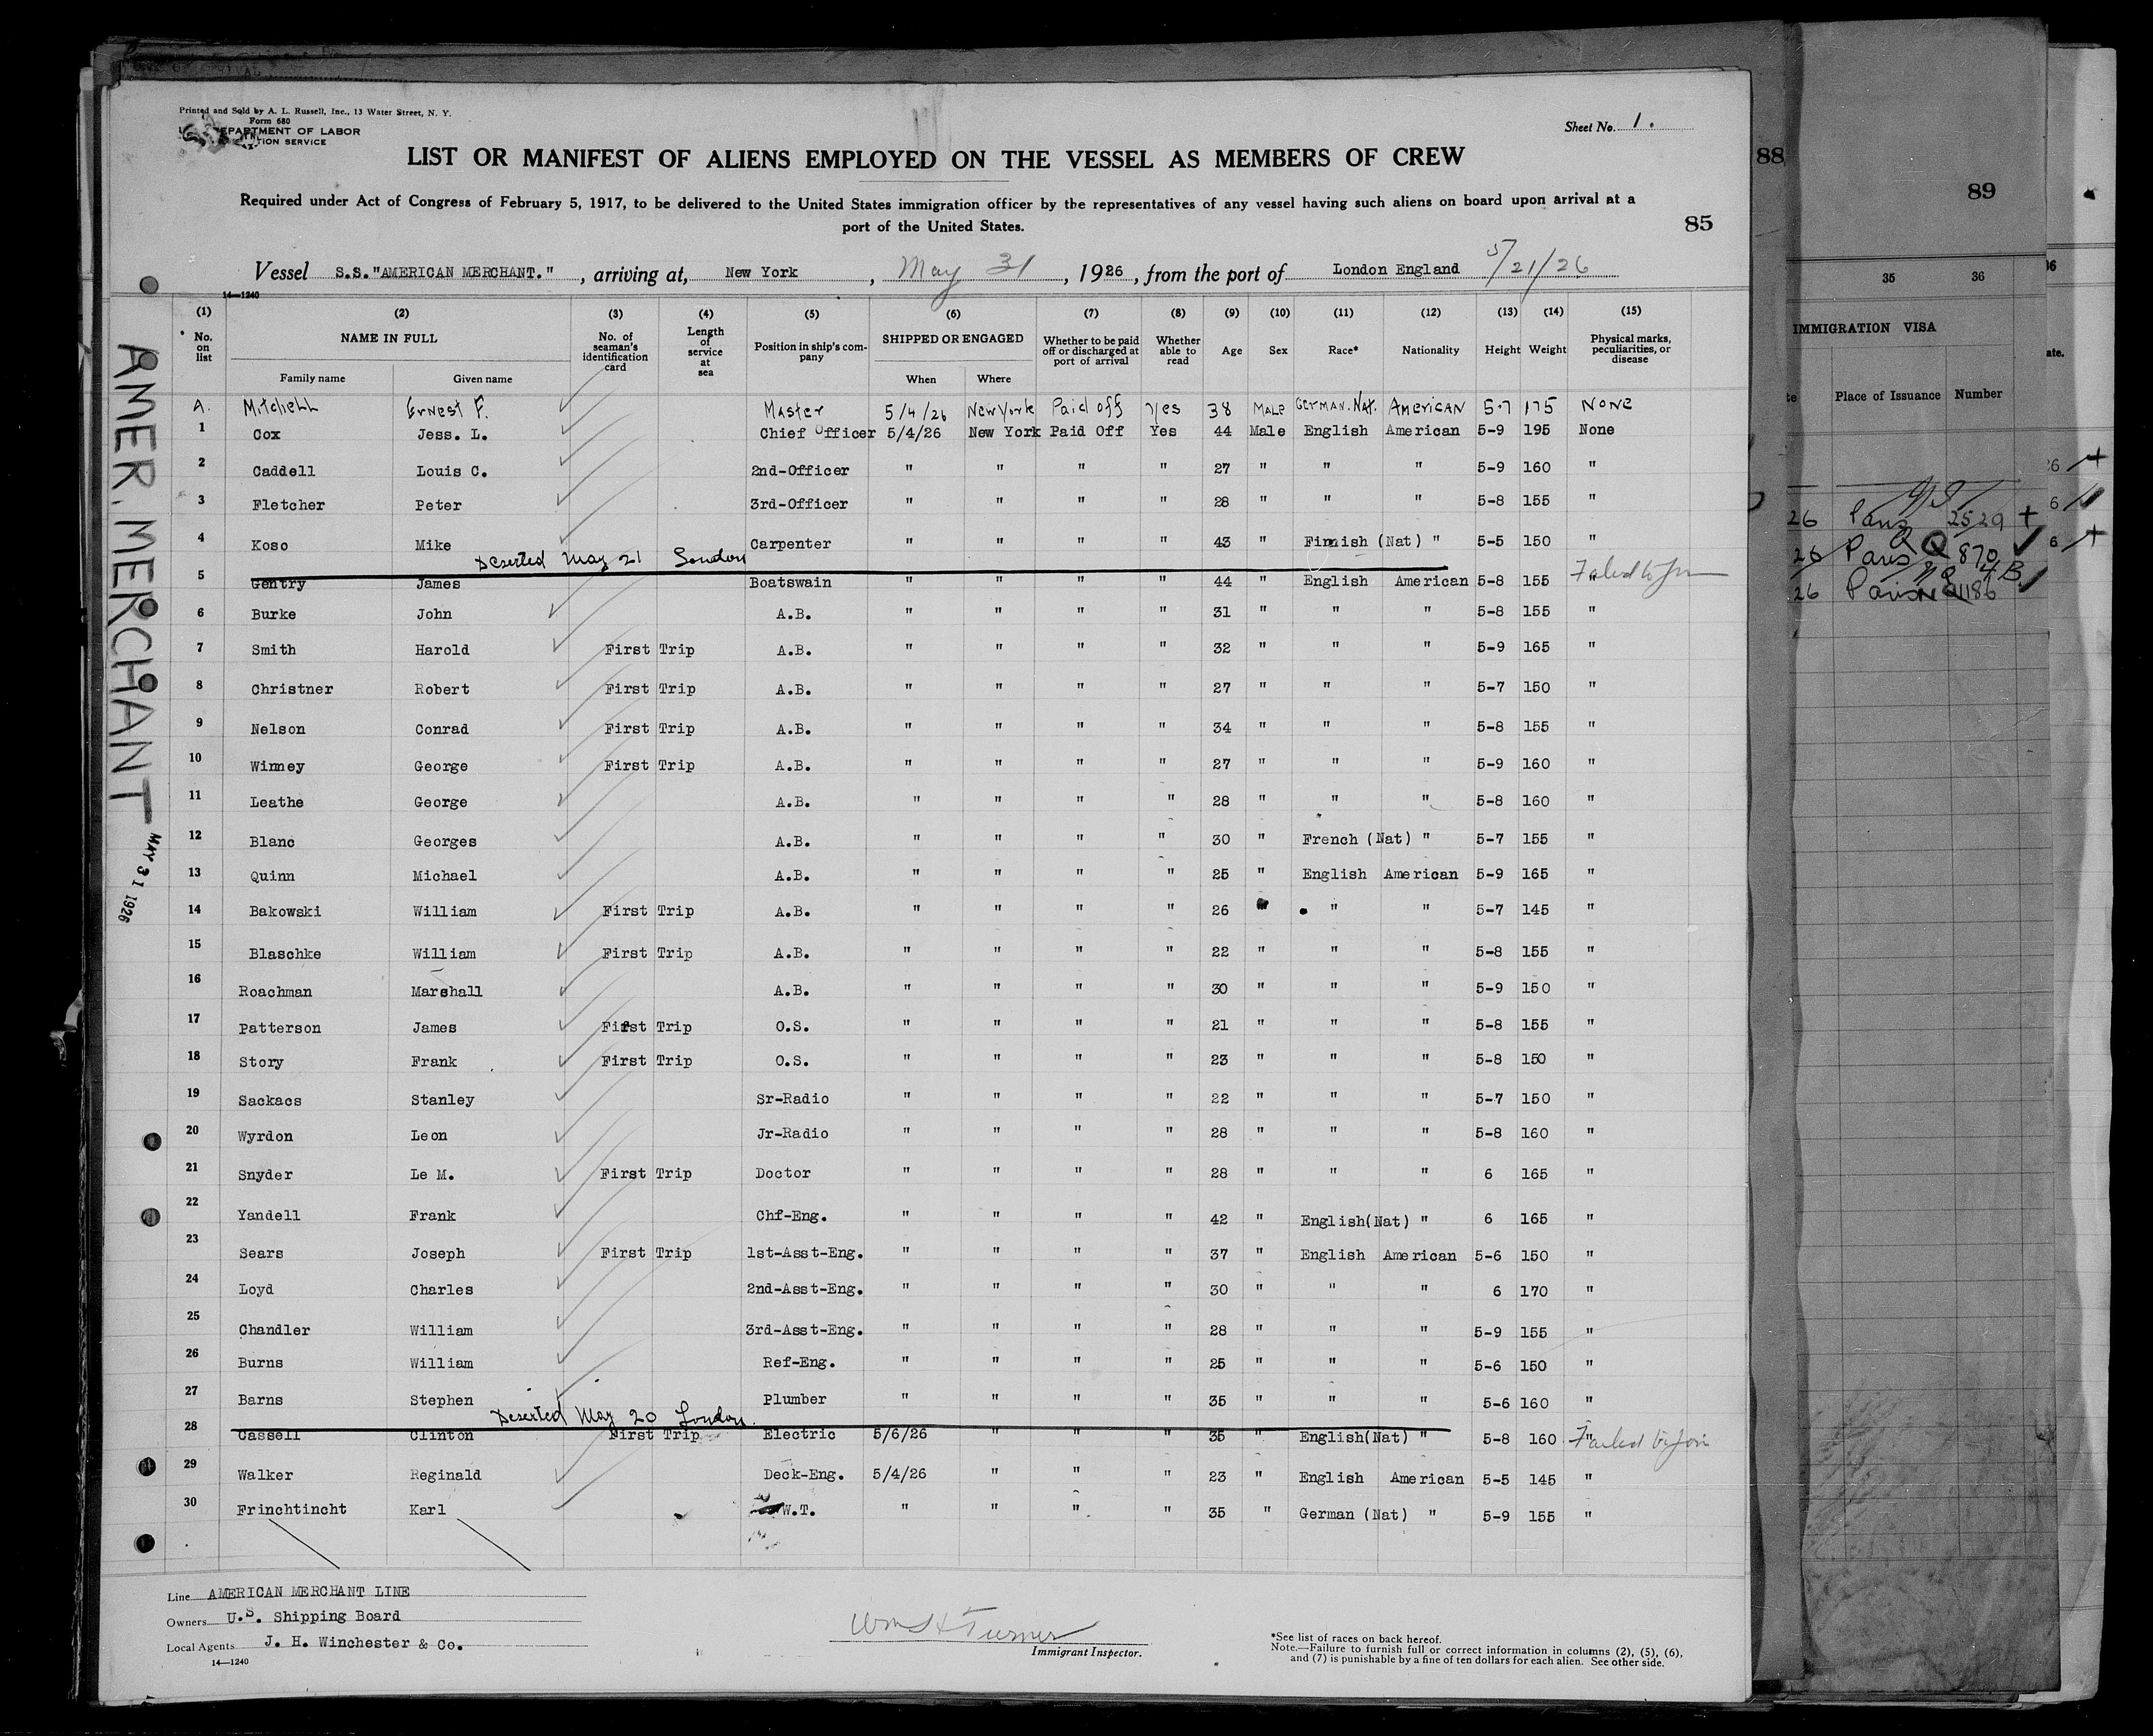 Printed and Sold by A. L. Russell, Inc., 13 Water Street, N. Y.
Form 680
DEPARTMENT OF LABOR
TION SERVICE
Sheet No. 1.
LIST OR MANIFEST OF ALIENS EMPLOYED ON THE VESSEL AS MEMBERS OF CREW
88
89
Required under Act of Congress of February 5, 1917, to be delivered to the United States immigration officer by the representatives of any vessel having such aliens on board upon arrival at a
port of the United States.
85
Vessel S.S."AMERICAN MERCHANT.", arriving at, New York, May 31, 1926, from the port of London England 5/21/26
14—1240
(1) No. on list (2) NAME IN FULL Family name Given name (3) No. of seaman's identification card (4) Length of service at sea (5) Position in ship's company (6) SHIPPED OR ENGAGED When Where (7) Whether to be paid off or discharged at port of arrival (8) Whether able to read (9) Age (10) Sex (11) Race* (12) Nationality (13) Height (14) Weight (15) Physical marks, peculiarities, or disease
A. Mitchell Ernest F. Master 5/4/26 New York Paid off Yes 38 Male German.Nat. American 5-7 175 None
1 Cox Jess. L. Chief Officer 5/4/26 New York Paid Off Yes 44 Male English American 5-9 195 None
2 Caddell Louis C. 2nd-Officer " " " " 27 " " " 5-9 160 "
3 Fletcher Peter 3rd-Officer " " " " 28 " " " 5-8 155 "
4 Koso Mike Carpenter " " " " 43 " Finnish (Nat) " 5-5 150 "
Deserted May 21 London
5 Gentry James Boatswain " " " " 44 " English American 5-8 155 " Failed to join
6 Burke John A.B. " " " " 31 " " " 5-8 155 "
7 Smith Harold First Trip A.B. " " " " 32 " " " 5-9 165 "
8 Christner Robert First Trip A.B. " " " " 27 " " " 5-7 150 "
9 Nelson Conrad First Trip A.B. " " " " 34 " " " 5-8 155 "
10 Winney George First Trip A.B. " " " " 27 " " " 5-9 160 "
11 Leathe George A.B. " " " " 28 " " " 5-8 160 "
12 Blanc Georges A.B. " " " " 30 " French (Nat) " 5-7 155 "
13 Quinn Michael A.B. " " " " 25 " English American 5-9 165 "
14 Bakowski William First Trip A.B. " " " " 26 " " " 5-7 145 "
15 Blaschke William First Trip A.B. " " " " 22 " " " 5-8 155 "
16 Roachman Marshall A.B. " " " " 30 " " " 5-9 150 "
17 Patterson James First Trip O.S. " " " " 21 " " " 5-8 155 "
18 Story Frank First Trip O.S. " " " " 23 " " " 5-8 150 "
19 Sackacs Stanley Sr-Radio " " " " 22 " " " 5-7 150 "
20 Wyrdon Leon Jr-Radio " " " " 28 " " " 5-8 160 "
21 Snyder Le M. First Trip Doctor " " " " 28 " " " 6 165 "
22 Yandell Frank Chf-Eng. " " " " 42 " English(Nat) " 6 165 "
23 Sears Joseph First Trip 1st-Asst-Eng. " " " " 37 " English American 5-6 150 "
24 Loyd Charles 2nd-Asst-Eng. " " " " 30 " " " 6 170 "
25 Chandler William 3rd-Asst-Eng. " " " " 28 " " " 5-9 155 "
26 Burns William Ref-Eng. " " " " 25 " " " 5-6 150 "
27 Barns Stephen Plumber " " " " 35 " " " 5-6 160 "
Deserted May 20 London.
28 Cassell Clinton First Trip Electric 5/6/26 " " " 35 " English(Nat) " 5-8 160 " Failed to join
29 Walker Reginald Deck-Eng. 5/4/26 " " " 23 " English American 5-5 145 "
30 Frinchtincht Karl W.T. " " " " 35 " German (Nat) " 5-9 155 "
Line AMERICAN MERCHANT LINE
Owners U.S. Shipping Board
Local Agents J. H. Winchester & Co.
14—1240
Wm H Turner
Immigrant Inspector.
*See list of races on back hereof.
Note.—Failure to furnish full or correct information in columns (2), (5), (6),
and (7) is punishable by a fine of ten dollars for each alien. See other side.
AMER. MERCHANT
MAY 31 1926
35 36
IMMIGRATION VISA
Place of Issuance Number
26 Paris 2529
26 Paris 870
26 Paris 1186